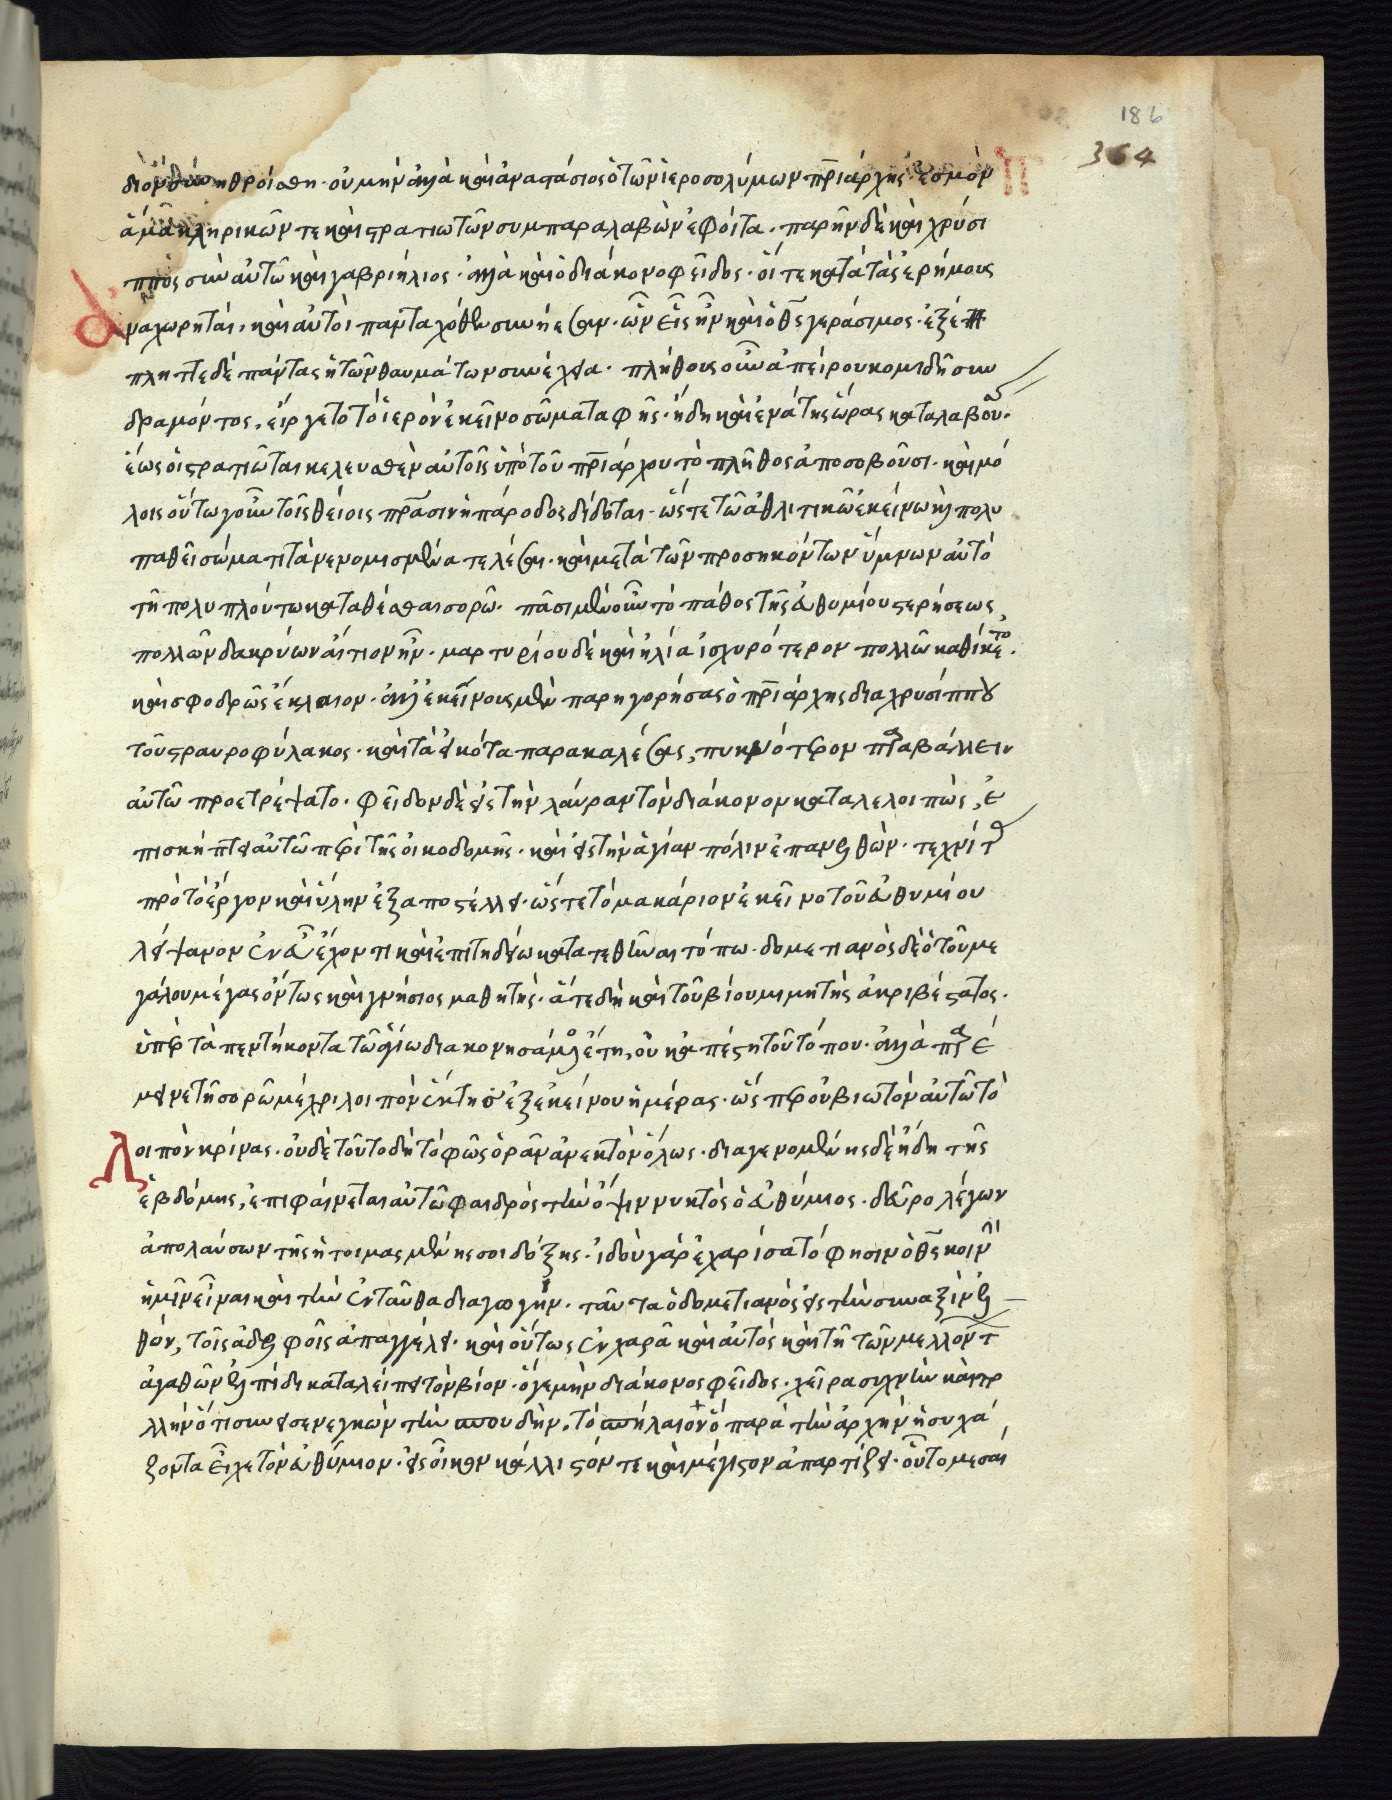 186
364
διον ἠθροίσθη· οὐ μὴν ἀλλὰ καὶ ἀναστάσιος ὁ τῶν ἱεροσολύμων πριάρχης ἐσμὸν
ἅμα κληρικῶν τε καὶ στρατιωτῶν συμπαραλαβὼν ἐφοίτα. παρῆν δὲ καὶ χρύσι
ππος σὺν αὐτῶ καὶ γαβριήλιος· ἀλλὰ καὶ ὁ διάκονο φεῖδος· οἵ τε κατὰ τὰς ἐρήμους
ἀναχωρηταί, καὶ αὐτοὶ πανταχόθεν συνήεσαν· ὧν εἷς ἦν καὶ ὁ θς γεράσιμος· ἐξέ
πληττε δὲ πάντας ἡ τῶν θαυμάτων συνέχεια· πλήθους οὖν ἀπείρου κομιδῆ συν
δραμόντος, εἴργετο τὸ ἱερὸν ἐκεῖνο σῶμα ταφῆς· ἤδη καὶ ἐνάτης ὥρας καταλαβούσ·
ἕως οἱ στρατιῶται κελευσθὲν αὐτοῖς ὑπὸ τοῦ πριάρχου τὸ πλῆθος ἀποσοβοῦσι· καὶ μό
λοις οὕτω γοῦν τοῖς θείοις πρασιν ἡ πάροδος δίδοται· ὥστε τῶ ἀθλιτικῶ ἐκείνω καὶ πολυ
παθεῖ σώματι τὰ νενομισμένα τελέσαι· καὶ μετὰ τῶν προσηκόντων ὕμνων αὐτὸ
τῆ πολυπλούτω καταθέσθαι σορῶ· πᾶσι μὲν οὖν τὸ πάθος τῆς εὐθυμίου στερήσεως,
πολλῶν δακρύων αἴτιον ἦν· μαρτυρίου δὲ καὶ ἠλία ἰσχυρότερον πολλῶ καθίκετο·
καὶ σφοδρῶς ἔκλαιον· ἀλλ' ἐκείνους μὲν παρηγορήσας ὁ πριάρχης διὰ χρυσίππου
τοῦ σταυροφύλακος· καὶ τὰ εἰκότα παρακαλέσας, πυκνότερον πραβάλλειν
αὐτῶ προετρέψατο· φεῖδον δὲ εἰς τὴν λαύραν τὸν διάκονον καταλελοιπὼς, ἐ
πισκήπτει αὐτῶ περὶ τῆς οἰκοδομῆς· καὶ εἰς τὴν ἁγίαν πόλιν ἐπανελθών· τεχνίτ
πρὸ τὸ ἔργον καὶ ὕλην ἐξαποστέλλει· ὥστε τὸ μακάριον ἐκεῖνο τοῦ εὐθυμίου
λείψανον ἐν εὖ ἔχοντι καὶ ἐπιτηδείω κατατεθῆναι τόπω· δομετιανὸς δὲ ὁ τοῦ με
γάλου μέγας ὄντως καὶ γνήσιος μαθητής· ἅτε δὴ καὶ τοῦ βίου μιμητὴς ἀκριβέστατος·
ὑπὲρ τὰ πεντήκοντα τῶ ἁγίω διακονησάμενος ἔτη, οὐκ ἀπέστη τοῦ τόπου· ἀλλὰ πρ έ
μεινε τῆ σορῶ μέχρι λοιπὸν ἕκτης ἐξ ἐκείνου ἡμέρας· ὥσπερ οὐ βιωτὸν αὐτῶ τὸ
λοιπὸν κρίνας· οὐδὲ τοῦτο δὴ τὸ φῶς ὁρᾶν ἀνεκτὸν ὅλως· διαγενομένης δὲ ἤδη τῆς
ἑβδόμης, ἐπιφαίνεται αὐτῶ φαιδρὸς τὴν ὄψιν νυκτὸς ὁ εὐθύμιος· δεῦρο λέγων
ἀπολαύσων τῆς ἡτοιμασμένης σοι δόξης· ἰδοὺ γὰρ ἐχαρίσατό φησιν ὁ θς κοινὴ
ἡμῖν εἶναι καὶ τὴν ἐνταῦθα διαγωγήν. ταῦτα ὁ δομετιανὸς εἰς τὴν συναξιν ἐλ
θὼν, τοῖς ἀδελφοῖς ἀπαγγέλει· καὶ οὕτως ἐν χαρᾶ καὶ αὐτὸς καὶ τῆ τῶν μελλόντ
ἀγαθῶν ἐλπίδι καταλείπει τὸν βίον· ὅγε μὴν διάκονος φεῖδος· χεῖρα συχνὴν καὶ πο
λλὴν ὅτι συνεισενεγκὼν τὴν σπουδήν. τὸ σπήλαιον ὃ παρὰ τὴν ἀρχὴν ἡσυχά
ζοντα εἶχε τὸν εὐθύμιον· εἰς οἶκον κάλλιστόν τε καὶ μέγιστον ἀπαρτίζει· οὗτο μεσαι